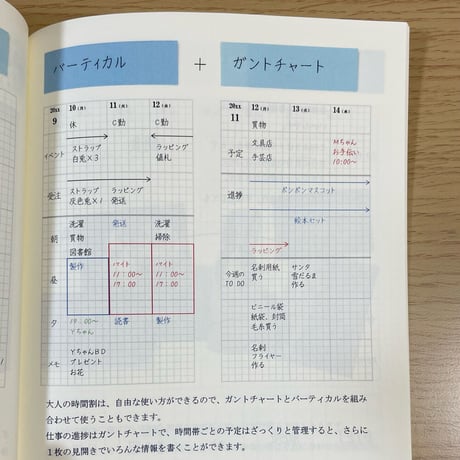 バーティカル ＋ ガントチャート
20XX 10(月) 11(火) 12(水)
9 休 C勤 C勤
イベント ストラップ ラッピング
白兎×3 値札
発注 ストラップ ラッピング
灰色兎×1 発送
朝 洗濯 発送 洗濯
買物 掃除
図書館
昼 製作 バイト バイト
11:00〜 11:00〜
17:00 17:00
夕 19:00〜 読書 製作
Yちゃん
メモ YちゃんBD
プレゼント
お花
20XX 12(月) 13(火) 14(水)
11 買物
予定 文具店 Mちゃん
手芸店 お手伝い
10:00〜
進捗 ポンポンマスコット
絵本セット
ラッピング
今週の 名刺用紙 サンタ
TO DO 買う 雪だるま
作る
ビニール袋
紙袋、封筒
毛糸買う
名刺
フライヤー
作る
大人の時間割は、自由な使い方ができるので、ガントチャートとバーティカルを組み
合わせて使うこともできます。
仕事の進捗はガントチャートで、時間帯ごとの予定はざっくりと管理すると、さらに
1枚の見開きでいろんな情報を書くことができます。